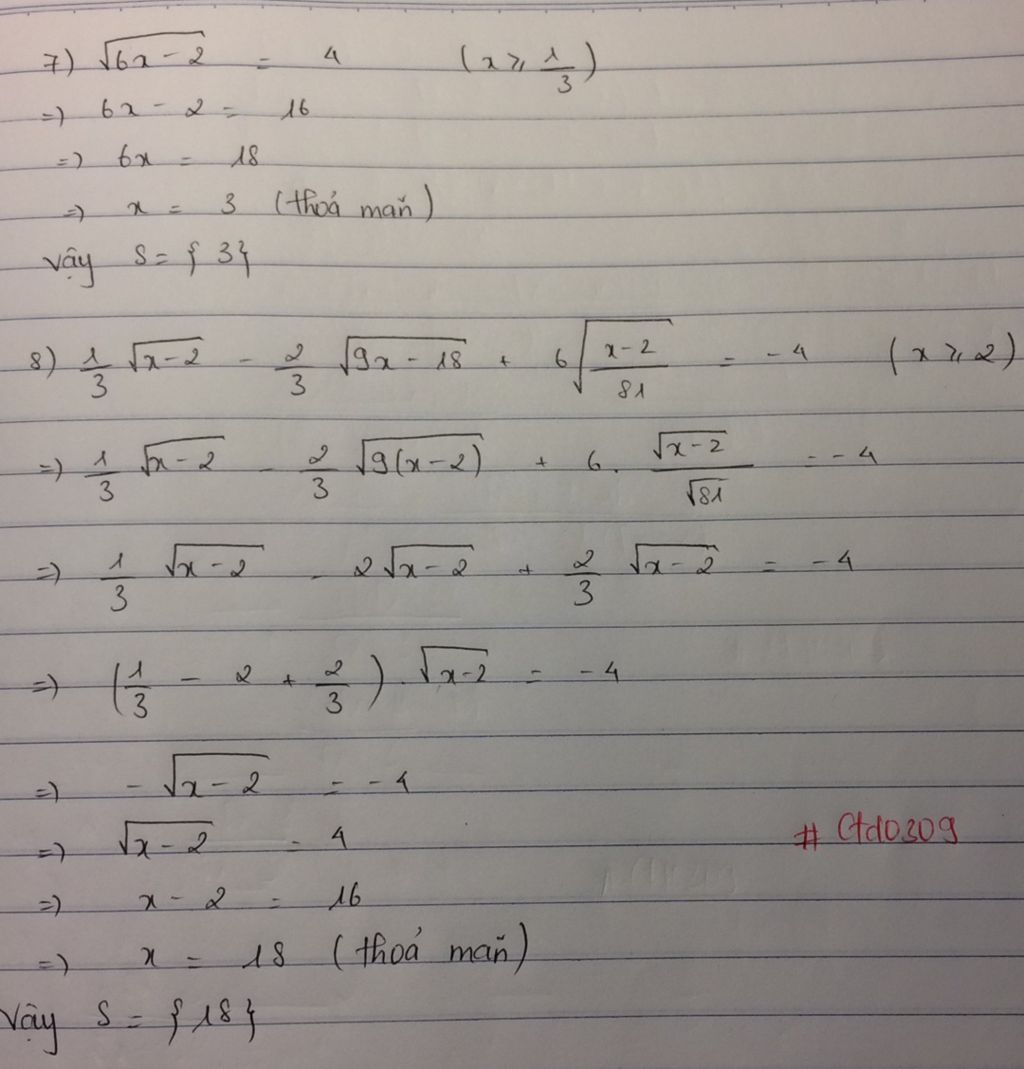 7) √(6x - 2) = 4 (x ⩾ 1/3)
=) 6x - 2 = 16
=) 6x = 18
=) x = 3 (thoả mãn)
Vậy S = { 3 }
8) 1/3 √(x - 2) - 2/3 √(9x - 18) + 6 √((x - 2)/81) = - 4 (x ⩾ 2)
=) 1/3 √(x - 2) - 2/3 √(9(x - 2)) + 6 . √(x - 2)/√81 = - 4
=) 1/3 √(x - 2) - 2 √(x - 2) + 2/3 √(x - 2) = - 4
=) (1/3 - 2 + 2/3) . √(x - 2) = - 4
=) - √(x - 2) = - 4
=) √(x - 2) = 4
# Ctd0309
=) x - 2 = 16
=) x = 18 (thoả mãn)
Vậy S = { 18 }